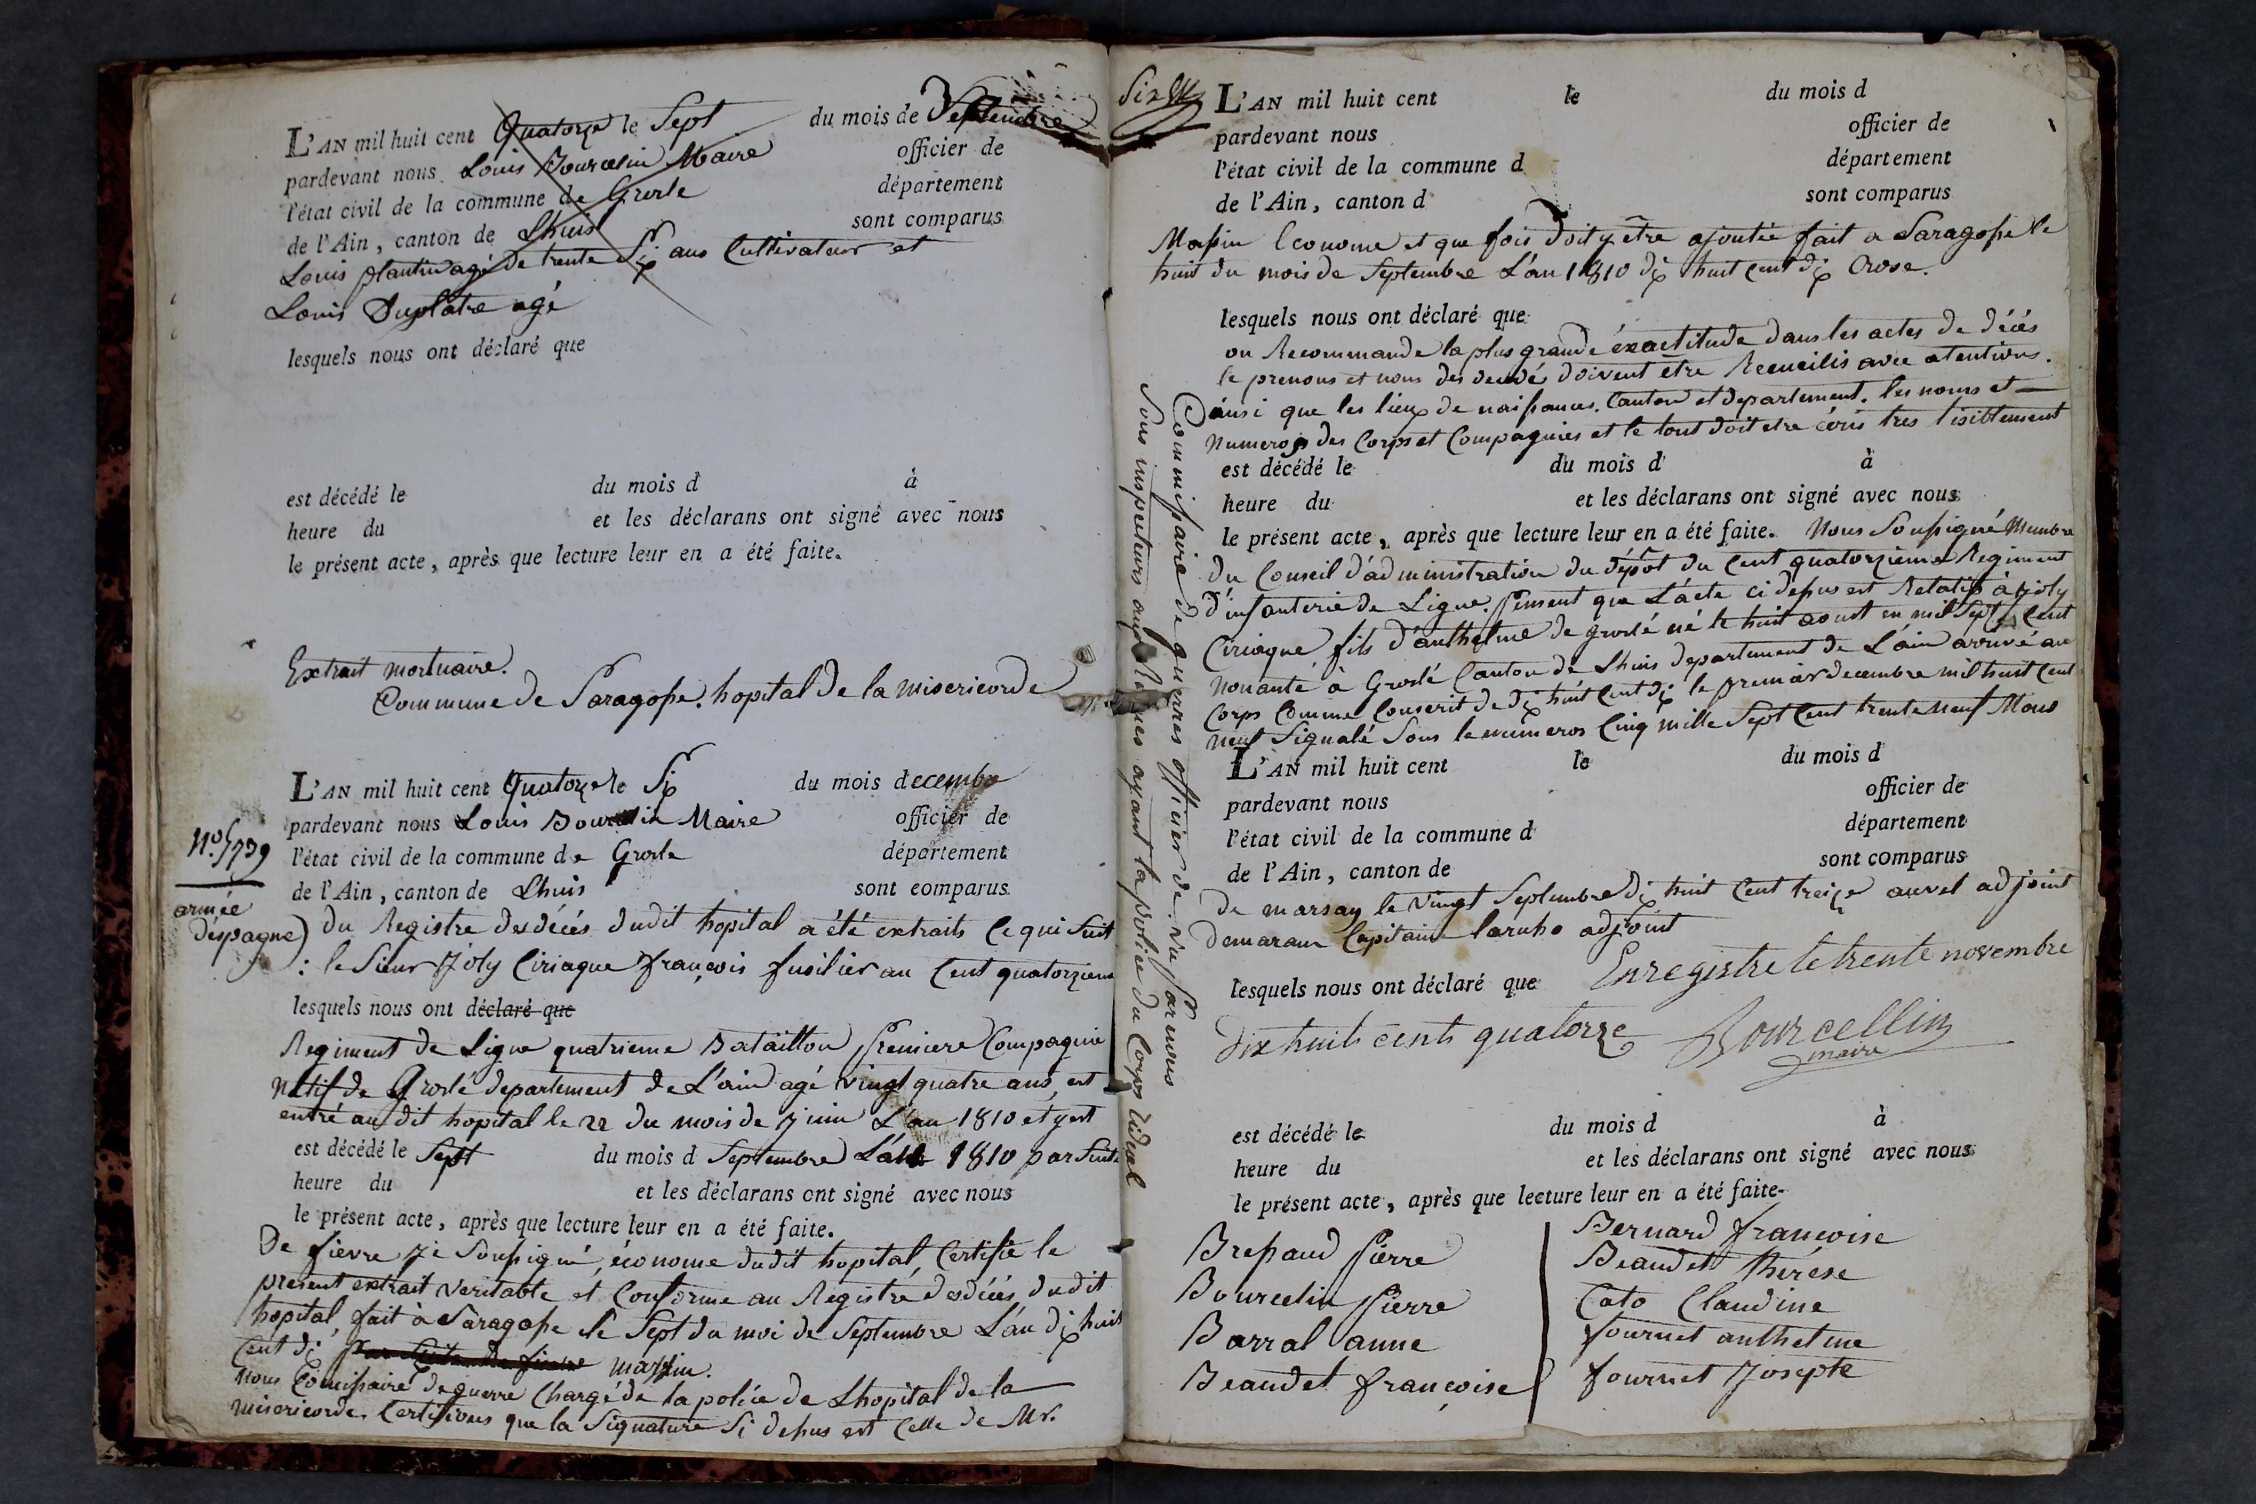 L'AN mil huit cent Quatorze le Sept du mois de Septembre
pardevant nous Louis Bourcelin Maire officier de
l'état civil de la commune de Groslé département
de l'Ain, canton de Lhuis sont comparus
Louis plantin agé de trente Six ans Cultivateur et
Louis Duplatre agé
lesquels nous ont déclaré que
est décédé le du mois d à
heure du et les déclarans ont signé avec nous
le présent acte, après que lecture leur en a été faite.
Extrait mortuaire.
Commune de Saragosse. hopital de la misericorde
L'AN mil huit cent Quatorze le Six du mois decembre
pardevant nous Louis Bourcelin Maire officier de
l'état civil de la commune de Grosle département
de l'Ain, canton de Lhuis sont comparus
No. 5739
armée
d'espagne
du Registre des décés dudit hopital a été extraits ce qui suit
: le Sieur Joly Ciriaque françois fusilier au Cent quatorzieme
lesquels nous ont déclaré que
Regiment de Ligne quatrieme Bataillon Premiere Compagnie
Natif de Groslé departement de L'ain agé vingt quatre ans, est
entré au dit hopital le 22 du mois de juin L'an 1810 et y est
est décédé le Sept du mois d Septembre L'an 1810 par Suite
heure du et les déclarans ont signé avec nous
le présent acte, après que lecture leur en a été faite.
De fievre je Soussigné, économe dudit hopital, Certifie le
present extrait veritable et Conforme au Registre des décés dudit
hopital, fait à Saragosse le Sept du moi de Septembre L'an dix huit
Cent dix massin.
Nous Comissaire de guerre Chargé de la police de Lhopital de la
misericorde. Certifions que la Signature Si dessus est Celle de Mr.
Six
L'AN mil huit cent le du mois d
pardevant nous officier de
l'état civil de la commune d département
de l'Ain, canton d sont comparus
Massin Econome et que fois doit y être ajoutée fait a Saragosse le
huit du mois de Septembre L'an 1810 dix huit Cent dix Crose.
lesquels nous ont déclaré que
on Recommande la plus grande éxactitude dans les actes de décés
le prenons et nom des decedé doivent être Recueilis avec atentions.
ainsi que les lieux de naissances. Canton et departement. les noms et
Numeros des Corps et Compagnies et le tout doit etre écris tres lisiblement
est décédé le du mois d à
heure du et les déclarans ont signé avec nous
le présent acte, après que lecture leur en a été faite. Nous Soussigné Membre
du Conseil d'administration du dépôt du Cent quatorzieme Regiment
d'infanterie de Ligne. Pensent que L'acte ci dessus est Relatif à joly
Ciriaque fils d'anthelme de groslé né le huit aoust en mil Sept Cent
Nonante à Groslé Canton de Lhuis departement de L'ain arrivé au
Corps Comme Conscrit de dix huit Cent dix le premier decembre mil huit Cent
neuf Signalé Sous le numeros Cinq mille Sept Cent trente neuf Mons
L'AN mil huit cent le du mois d
pardevant nous officier de
l'état civil de la commune d département
de l'Ain, canton de sont comparus
De marsay le vingt Septembre dix huit Cent treize auvel adjoint
demaraux Capitaine laruho adjoint
lesquels nous ont déclaré que Enregistre le trente novembre
Dix huit cents quatorze Bourcellin
maire
est décédé le du mois d à
heure du et les déclarans ont signé avec nous
le présent acte, après que lecture leur en a été faite.
Commissaire de guerres officier de
Sous inspecteurs aux Revues ayant la police du Corps Vidual
Bressaud Pierre
Bourcelin Pierre
Barral anne
Beaudet françoise
Bernard françoise
Beaudet Thérèse
Cato Claudine
fournet anthelme
fournet Josepte